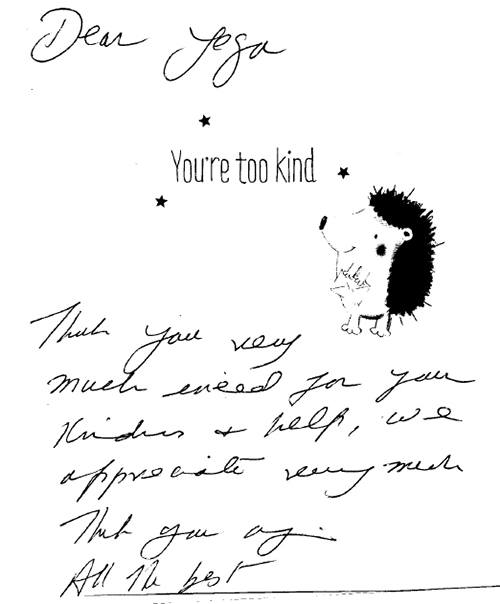 Dear Yega
You're too kind
Thank you very
much indeed for your
Kindness + help, we
appreciate very much
Thank you again
All the best